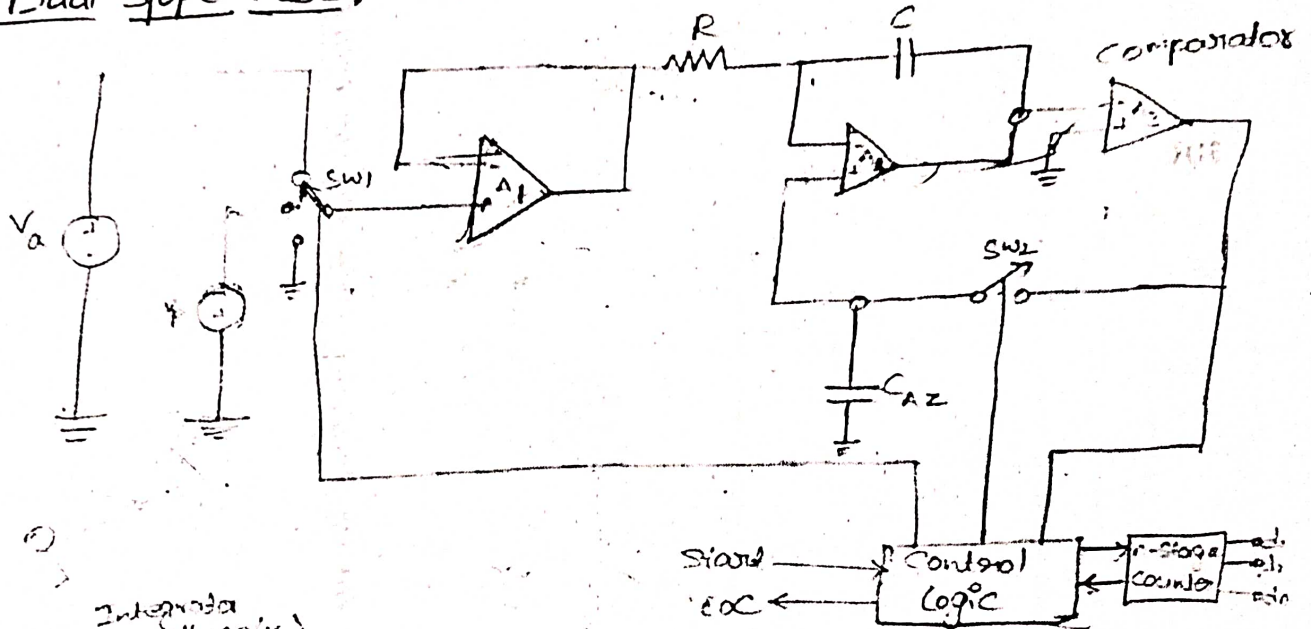 Dual slope
R
C
Comparator
SW1
A1
Va
SW2
CAZ
Start
EOC
Control
Logic
n-Stage
counter
Integrator